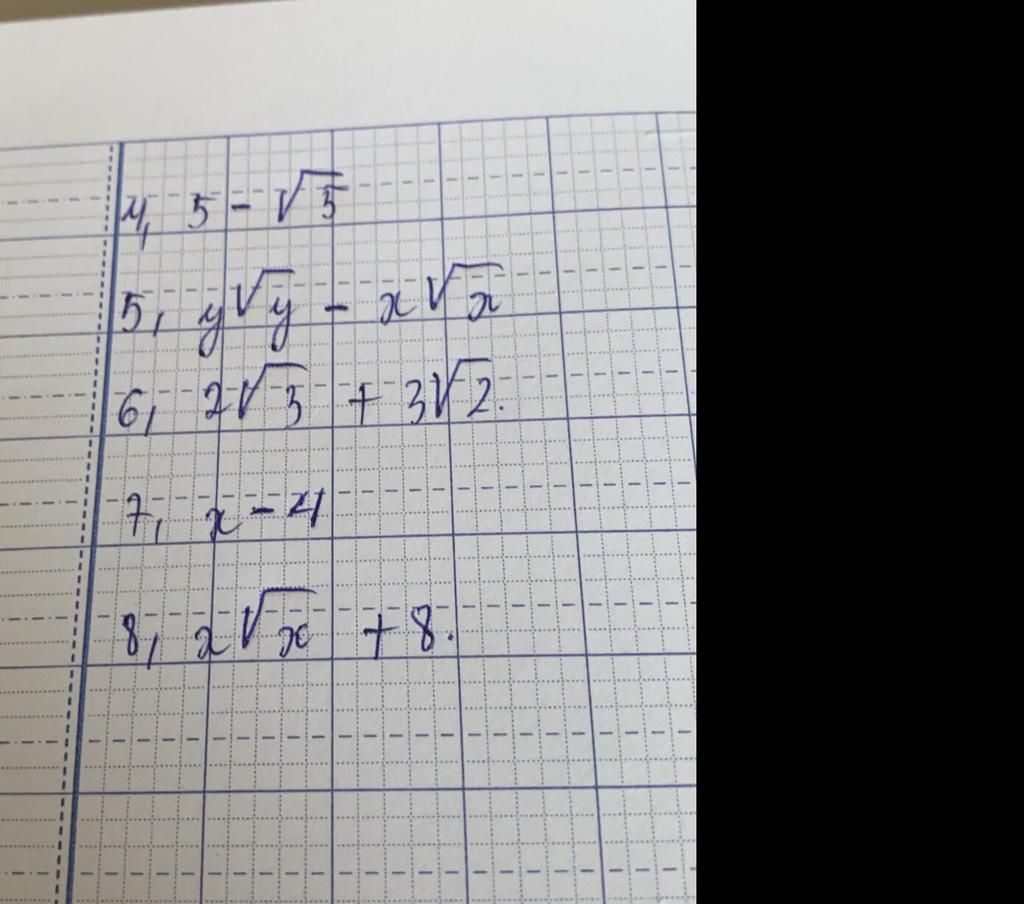 4, 5 - √5
5, y√y - x√x
6, 2√3 + 3√2.
7, x - 4
8, x√x + 8.